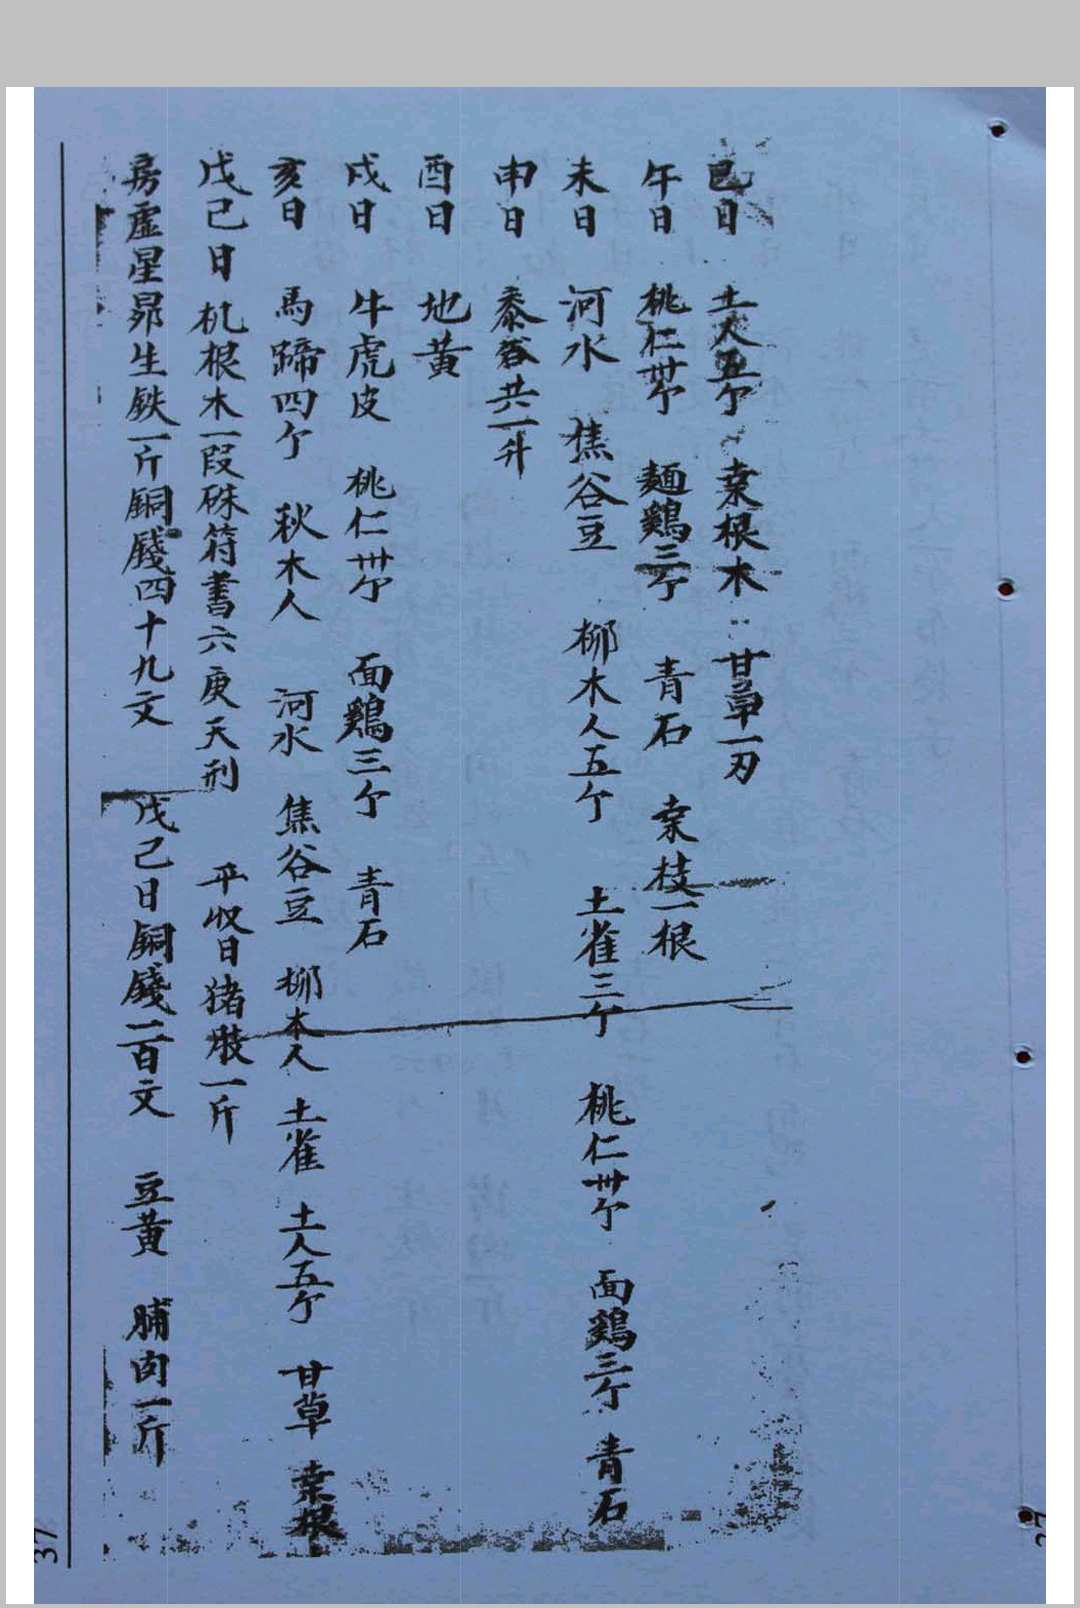 巳日　土人五个　桒根木　甘草一刃
午日　桃仁卅个　麺鷄三个　青石　桒枝一根
未日　河水　焦谷豆　柳木人五个　土雀三个　桃仁卅个　面鷄三个　青石
申日　黍谷共一升
酉日　地黄
戌日　牛虎皮　桃仁卅个　面鷄三个　青石
亥日　馬蹄四个　秋木人　河水　焦谷豆　柳木人　土雀　土人五个　甘草　桒根
戊己日　机根木一段硃符書六庚天刑　平収日猪肢一斤
房虚星昴生鉄一斤銅錢四十九文　戊己日銅錢二百文　豆黄　脯肉一斤
37
37